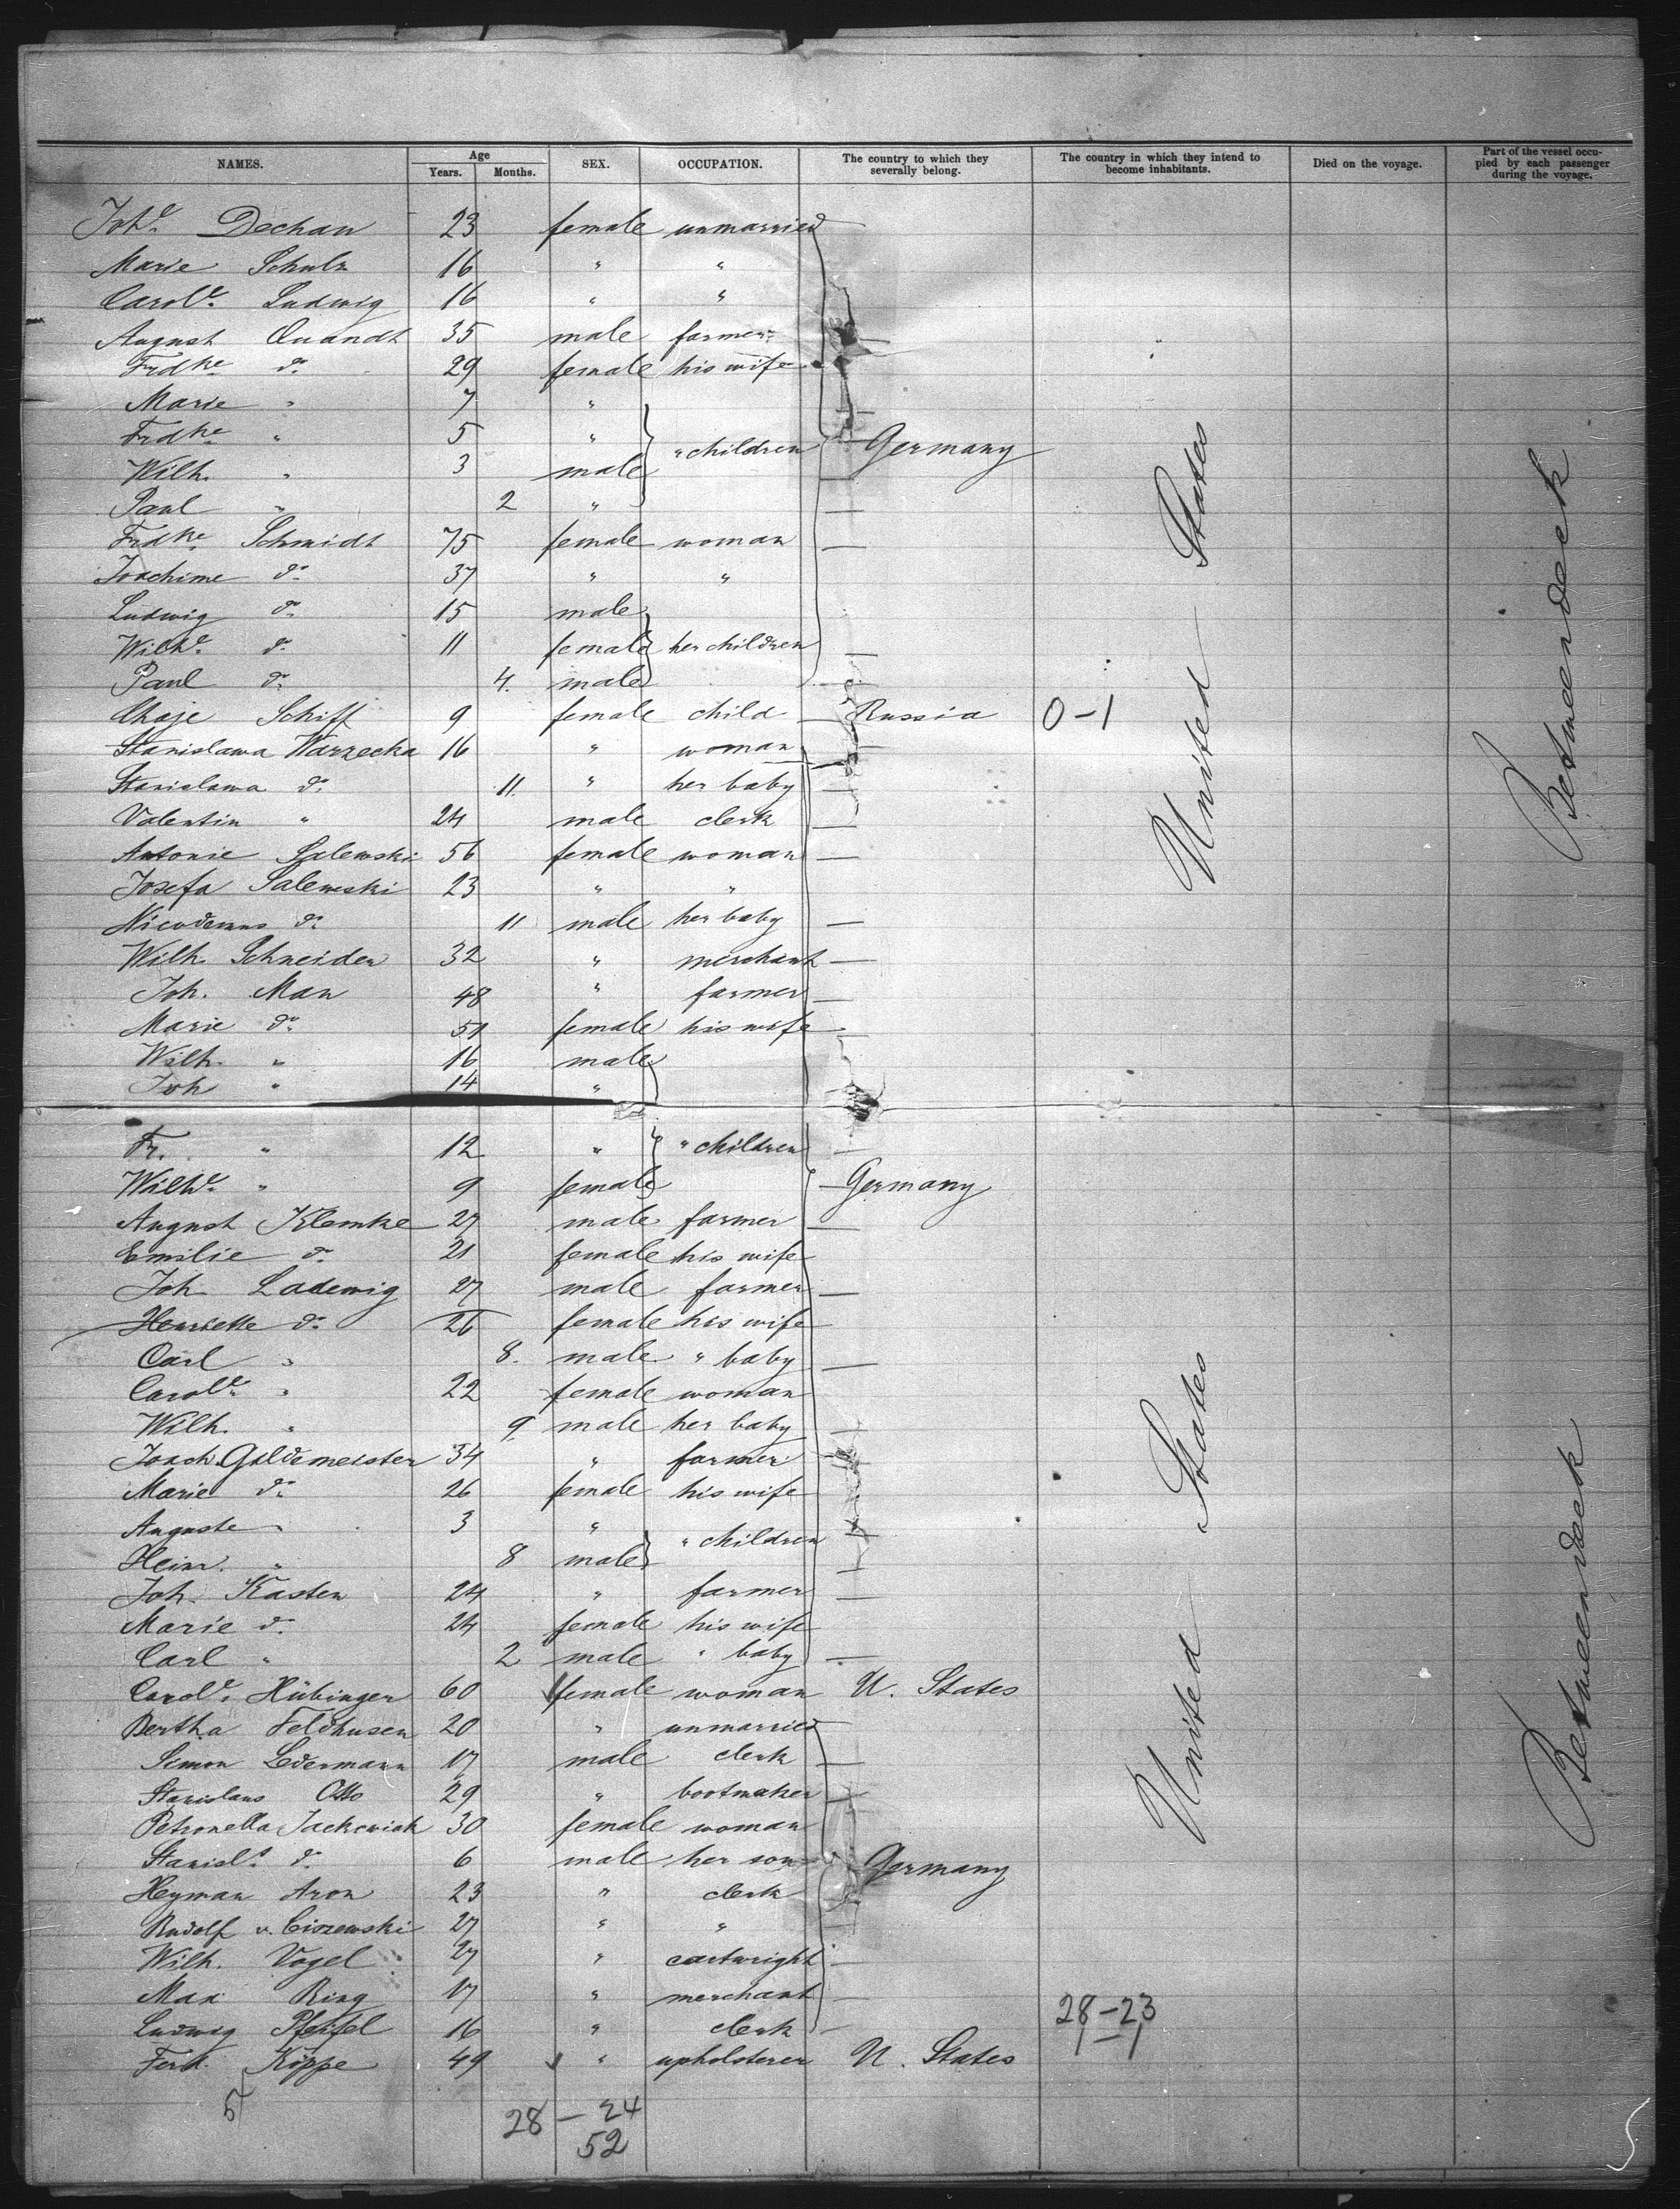 NAMES. Age Years. Months. SEX. OCCUPATION. The country to which they severally belong. The country in which they intend to become inhabitants. Died on the voyage. Part of the vessel occupied by each passenger during the voyage.
Joh.e Dechau 23 female unmarried
Marie Schulz 16 " "
Carol.e Ludwig 16 " "
August Quandt 35 male farmer
Frdke d.o 29 female his wife
Marie " 7 "
Frdke " 5 " " children Germany
Wilh. " 3 male
Paul " 2 "
Frdke Schmidt 75 female woman
Joachime d.o 37 " "
Ludwig d.o 15 male
Wilh.e d.o 11 female her children
Paul d.o 4. male
Chaje Schiff 9 female child Russia 0-1
Stanislawa Warzecha 16 " woman
Stanislawa d.o 11. " her baby
Valentin " 24 male clerk
Antonie Salewski 56 female woman
Josefa Salewski 23 " "
Nicodemus d.o 11 male her baby
Wilh. Schneider 32 " merchant
Joh. Mau 48 " farmer
Marie d.o 51 female his wife
Wilh. " 16 male
Joh " 14 "
Fr. " 12 " " children
Wilh.e " 9 female Germany
August Klemke 27 male farmer
Emilie d.o 21 female his wife
Joh. Ladewig 27 male farmer
Henriette d.o 26 female his wife
Carl " 8. male " baby
Carol.e " 22 female woman
Wilh. " 9 male her baby
Joach. Gildemeister 34 " farmer
Marie d.o 26 female his wife
Auguste " 3 " " children
Heinr. " 8 male
Joh. Kasten 24 " farmer
Marie d.o 24 female his wife
Carl " 2 male " baby
Carol.e Hübinger 60 female woman U. States
Bertha Feldhusen 20 " unmarried
Simon Ledermann 17 male clerk
Stanislaus Otto 29 " bootmaker
Petronella Jackowiak 30 female woman
Stanisl.s d.o 6 male her son Germany
Heyman Aron 23 " clerk
Rudolf v. Ciszewski 27 " "
Wilh. Vogel 27 " cartwright
Max Ring 17 " merchant
Ludwig Pfeifel 16 " clerk 28-23
1-1
Ferd. Köppe 49 " upholsterer U. States
28 - 24
52
United States
United States
Betweendeck
Betweendeck